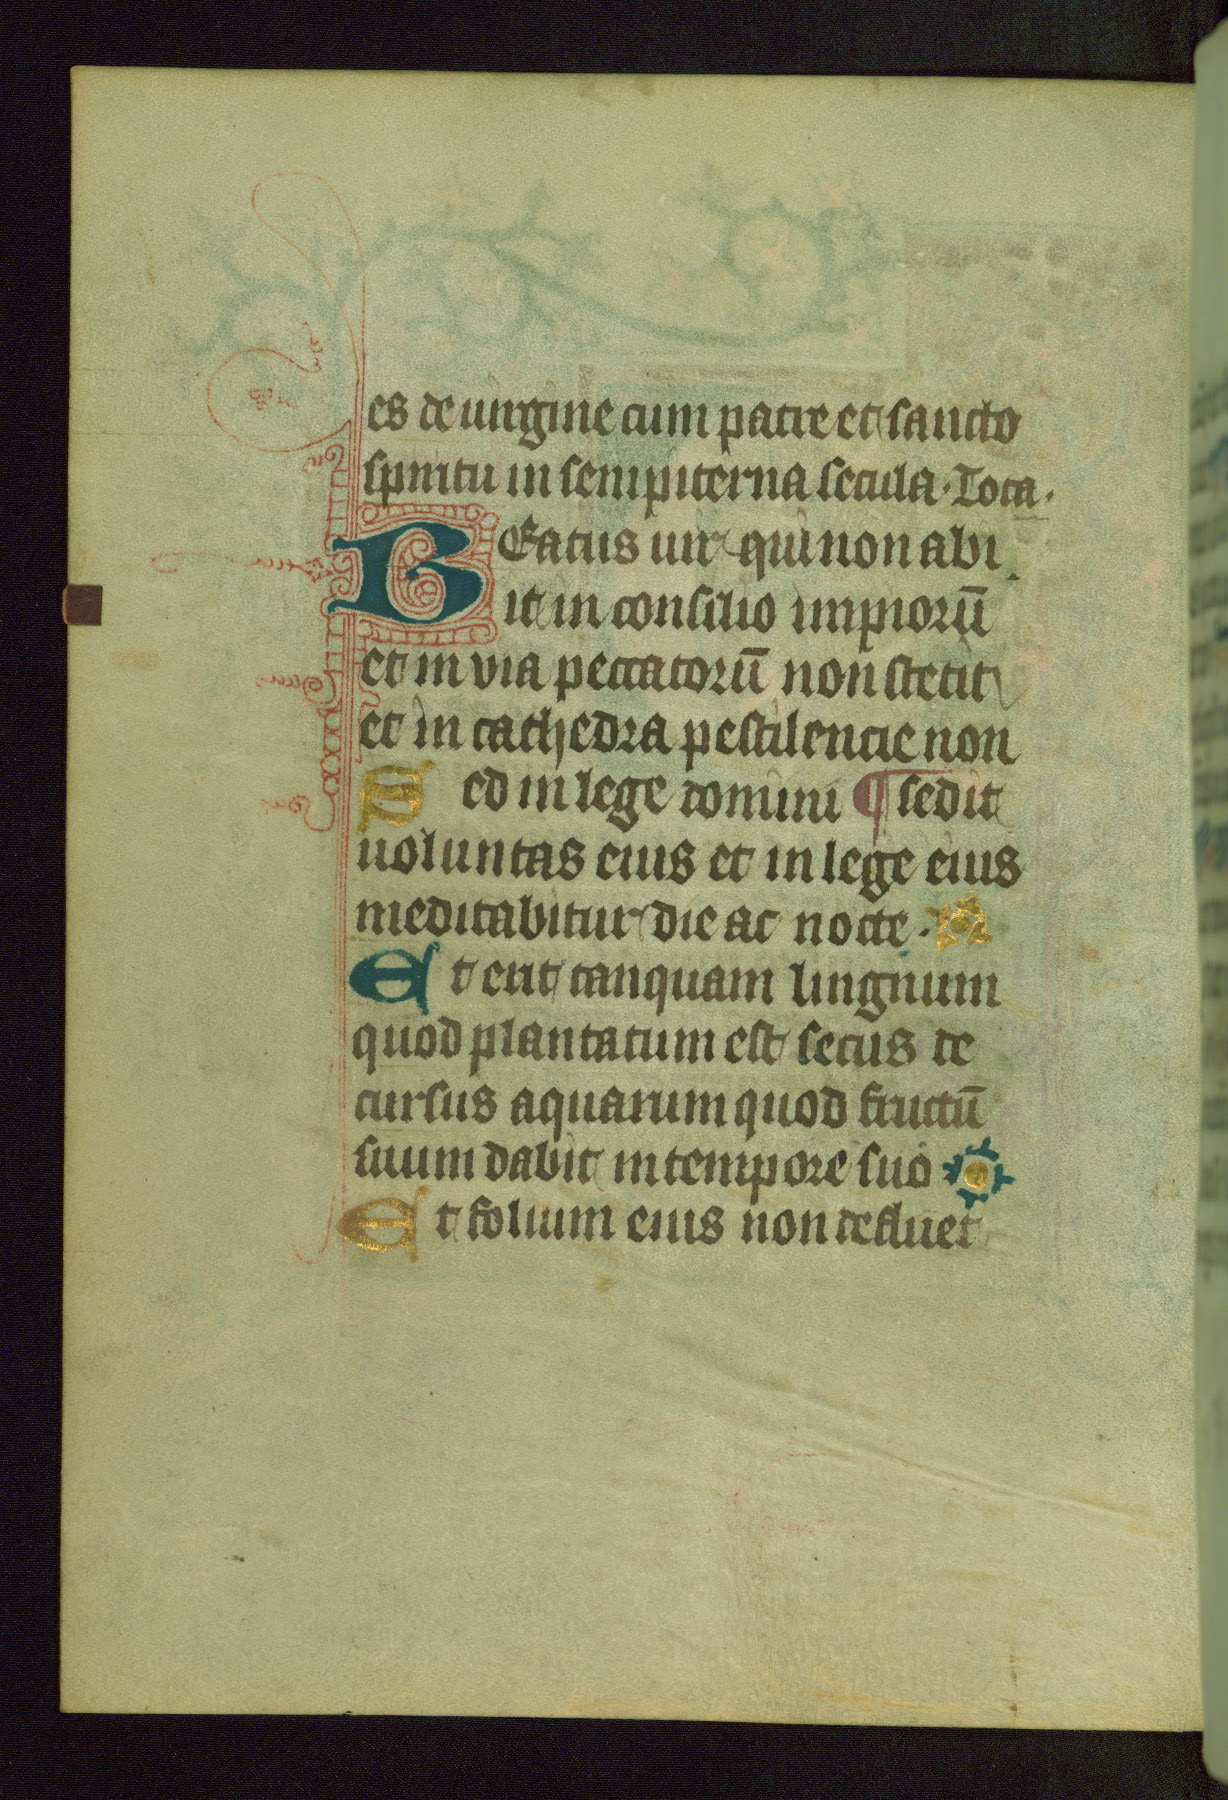 es de uirgine cum patre et sancto
spiritu in sempiterna secula. Tota.
BEatus uir qui non abi
it in consilio impiorū
et in via peccatorū non stetit
et in cathedra pestilencie non
Sed in lege domini ¶ sedit
uoluntas eius et in lege eius
meditabitur die ac nocte.
Et erit tanquam lingnum
quod plantatum est secus de
cursus aquarum quod fructū
suum dabit in tempore suo
Et folium eius non defluet